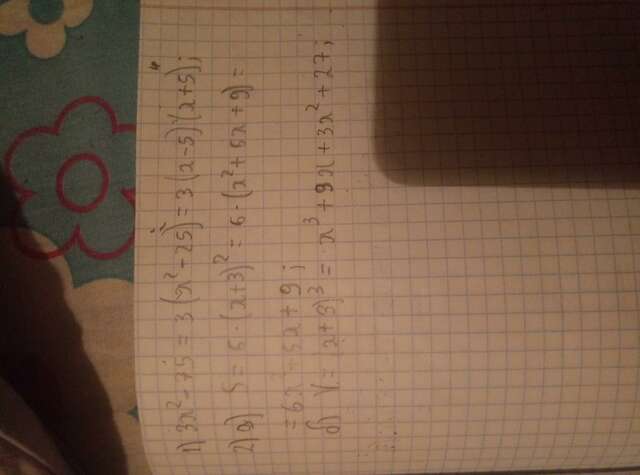 1) 3x² - 75 = 3(x² - 25) = 3(x-5)(x+5);
2) a) S = 6·(x+3)² = 6·(x²+6x+9) =
= 6x² 6x + 9;
б) V = (x+3)³ = x³ + 9x + 3x² + 27;